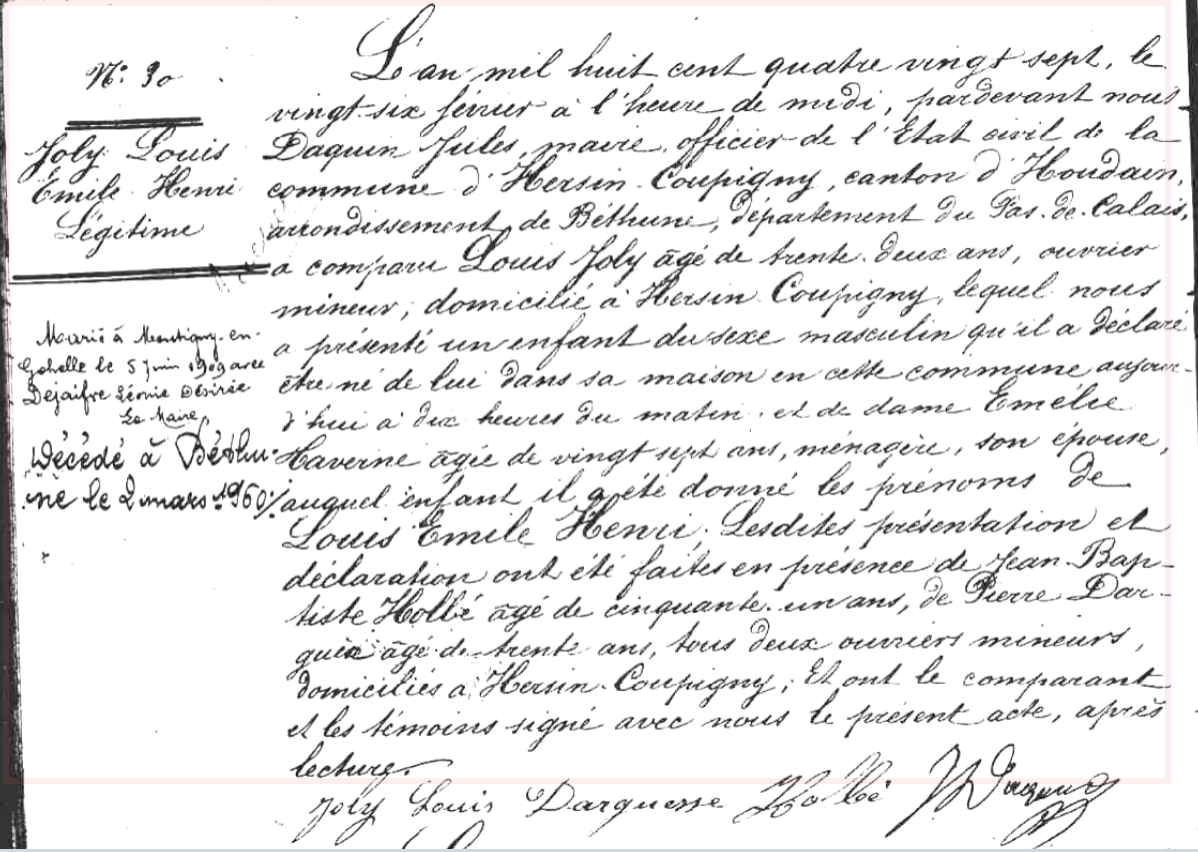 N° 30
Joly Louis
Emile Henri
Légitime
Marié à Montigny-en-
Gohelle le 5 juin 1909 avec
Dejaifre Léonie Désirée
Le Maire,
Décédé à Béthu-
ne le 2 mars 1960
L'an mil huit cent quatre vingt sept, le
vingt-six février à l'heure de midi, pardevant nous
Daquin Jules, maire, officier de l'Etat civil de la
commune d'Hersin-Coupigny, canton d'Houdain,
arrondissement de Béthune, département du Pas-de-Calais,
a comparu Louis Joly âgé de trente-deux ans, ouvrier
mineur, domicilié à Hersin-Coupigny, lequel nous
a présenté un enfant du sexe masculin qu'il a déclaré
être né de lui dans sa maison en cette commune aujour-
d'hui à dix heures du matin, et de dame Emélie
Haverne âgée de vingt sept ans, ménagère, son épouse,
auquel enfant il a été donné les prénoms de
Louis Emile Henri. Lesdites présentation et
déclaration ont été faites en présence de Jean-Bap-
tiste Holbé âgé de cinquante-un ans, de Pierre Dar-
âgé de trente ans, tous deux ouvriers mineurs,
domiciliés à Hersin-Coupigny; Et ont le comparant
et les témoins signé avec nous le présent acte, après
lecture.
Joly Louis Darquesse Holbé